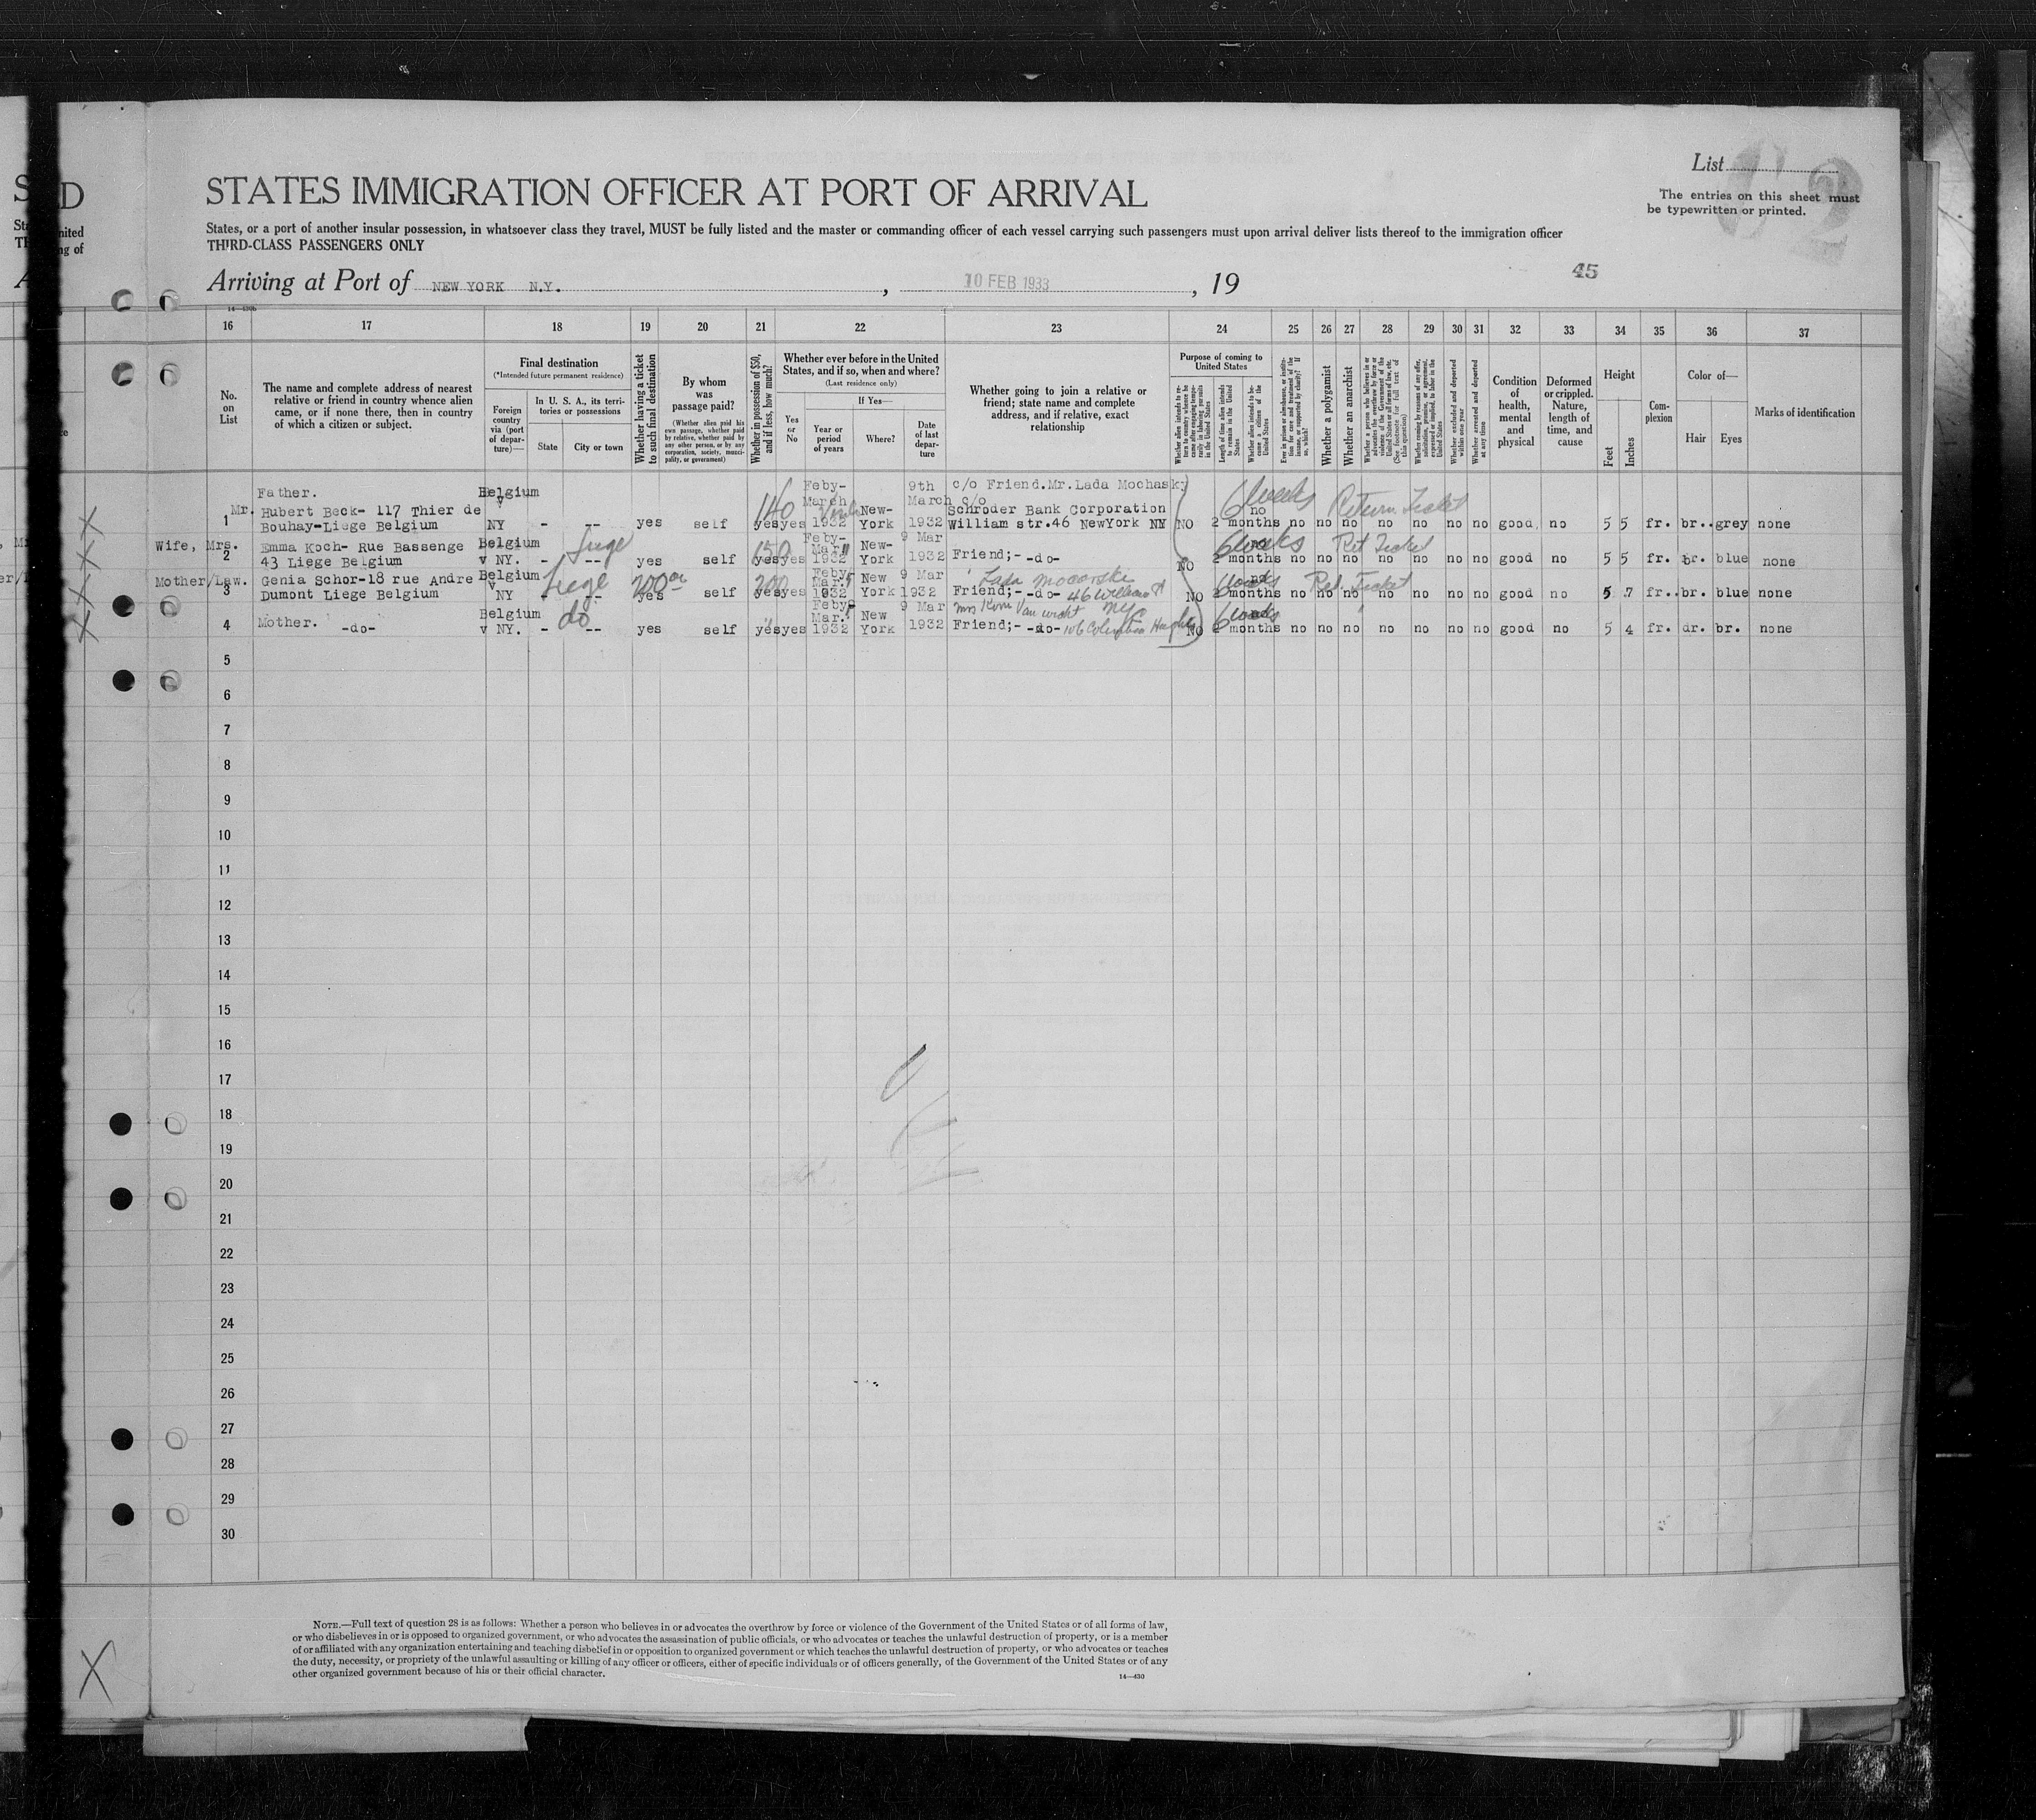 S D
STATES IMMIGRATION OFFICER AT PORT OF ARRIVAL
List
The entries on this sheet must
be typewritten or printed.
States, or a port of another insular possession, in whatsoever class they travel, MUST be fully listed and the master or commanding officer of each vessel carrying such passengers must upon arrival deliver lists thereof to the immigration officer
THIRD-CLASS PASSENGERS ONLY
Arriving at Port of NEW YORK N.Y. , 10 FEB 1933 , 19
45
16 17 18 19 20 21 22 23 24 25 26 27 28 29 30 31 32 33 34 35 36 37
No. on List
The name and complete address of nearest relative or friend in country whence alien came, or if none there, then in country of which a citizen or subject.
Final destination
(*Intended future permanent residence)
Foreign country via (port of departure)—
In U. S. A., its territories or possessions
State
City or town
Whether having a ticket to such final destination
By whom was passage paid?
(Whether alien paid his own passage, whether paid by relative, whether paid by any other person, or by any corporation, society, municipality, or government)
Whether in possession of $50, and if less, how much?
Whether ever before in the United States, and if so, when and where?
(Last residence only)
Yes or No
If Yes—
Year or period of years
Where?
Date of last departure
Whether going to join a relative or friend; state name and complete address, and if relative, exact relationship
Purpose of coming to United States
Whether alien intends to return to country whence he came after engaging temporarily in laboring pursuits in the United States
Length of time alien intends to remain in the United States
Whether alien intends to become a citizen of the United States
Ever in prison or almshouse, or institution for care and treatment of the insane, or supported by charity? If so, which?
Whether a polygamist
Whether an anarchist
Whether a person who believes in or advocates the overthrow by force or violence of the Government of the United States or all forms of law, etc. (See footnote for full text of this question)
Whether coming by reason of any offer, solicitation, promise, or agreement, expressed or implied, to labor in the United States
Whether excluded and deported within one year
Whether arrested and deported at any time
Condition of health, mental and physical
Deformed or crippled. Nature, length of time, and cause
Height
Feet
Inches
Complexion
Color of—
Hair
Eyes
Marks of identification
Father. Belgium Feby- 9th c/o Friend.Mr.Lada Mochasky
Mr. Hubert Beck- 117 Thier de v 140 March New- March c/o Schroder Bank Corporation 6 weeks no Return Ticket
1 Bouhay-Liege Belgium NY - -- yes self yes yes 1932 York 1932 William str.46 NewYork NY NO 2 months no no no no no no no good no 5 5 fr. br. grey none
Wife, Mrs. Emma Koch- Rue Bassenge Belgium 150 Feby- Mar New- 9 Mar 6 weeks Ret Ticket
2 43 Liege Belgium v NY. - -- yes self yes yes 1932 York 1932 Friend;- -do- NO 2 months no no no no no no no good no 5 5 fr. br. blue none
Mother/Law. Genia Schor-18 rue Andre Belgium v Liege 200 00 200 Feby Mar. New 9 Mar Lada Mocarski 6 weeks Ret. Ticket
3 Dumont Liege Belgium NY - -- yes self yes yes 1932 York 1932 Friend;- -do- 46 William St NO 2 months no no no no no no no good no 5 7 fr. br. blue none
Mother. Belgium do Feby Mar. New 9 Mar NYC 6 weeks
4 -do- v NY. - -- yes self yes yes 1932 York 1932 Friend;- -do- NO 2 months no no no no no no no good no 5 4 fr. dr. br. none
5
6
7
8
9
10
11
12
13
14
15
16
17
18
19
20
21
22
23
24
25
26
27
28
29
30
NOTE.—Full text of question 28 is as follows: Whether a person who believes in or advocates the overthrow by force or violence of the Government of the United States or of all forms of law,
or who disbelieves in or is opposed to organized government, or who advocates the assassination of public officials, or who advocates or teaches the unlawful destruction of property, or is a member
of or affiliated with any organization entertaining and teaching disbelief in or opposition to organized government or which teaches the unlawful destruction of property, or who advocates or teaches
the duty, necessity, or propriety of the unlawful assaulting or killing of any officer or officers, either of specific individuals or of officers generally, of the Government of the United States or of any
other organized government because of his or their official character.
14—430